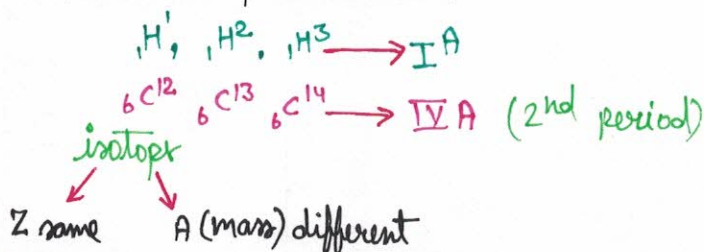 ₁H¹, ₁H², ₁H³ → I A
₆C¹² ₆C¹³ ₆C¹⁴ → IV A (2nd period)
isotopes
Z same A (mass) different